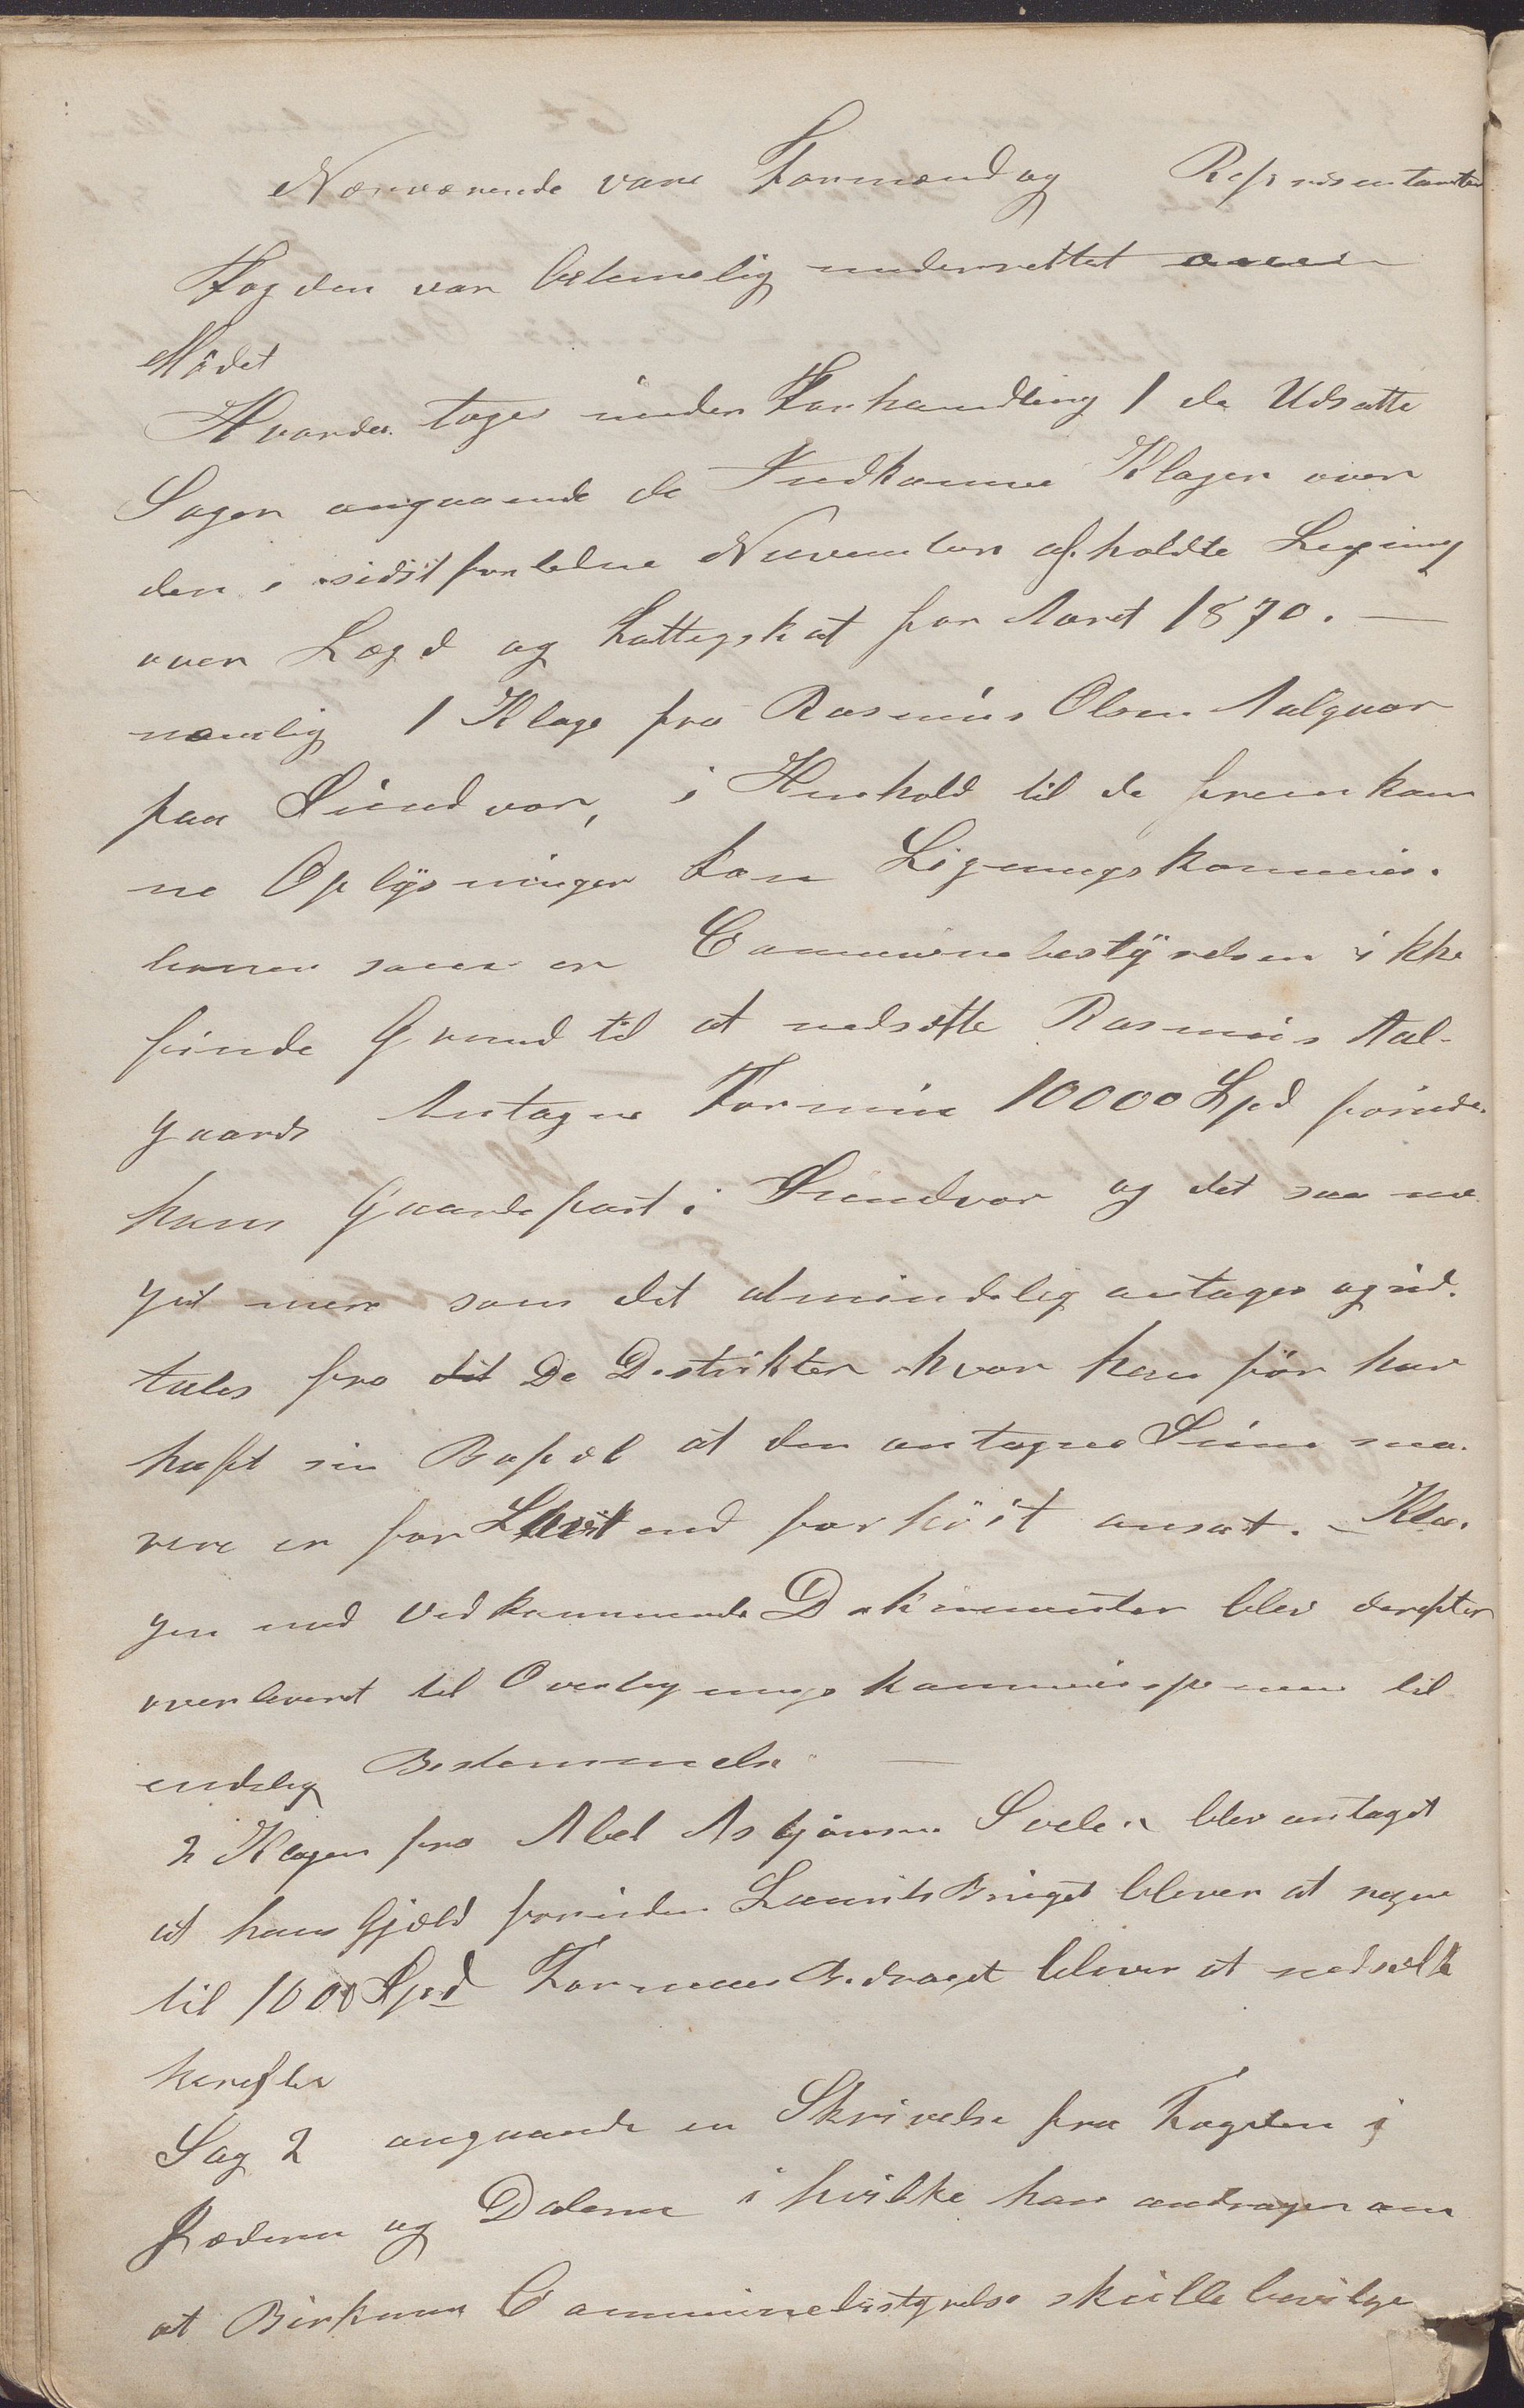 Nærværende vare Formænd og Repræsentanter
Fogden var betimelig underrettet
Mödet
Hvorda toges under Forhandling 1 de Udsatte
Sager angaaende de Indkomne Klager over
den i sidstforledne November afholdte Ligning
over Lægd og Fattigskat for Aaret 1870. —
nemlig 1 Klage fra Rasmus Olsen Aalgaar
paa Sundvor, i Henhold til de fremkom
ne Oplysninger kan Ligningskommis-
ionen som en Communebestyrelsen ikke
finde Grund til at nedsætte Rasmus Aal-
gaards Antagne Formue 10000 Spd foruden
hans Gaardspart i Sundvor og det saa me
get mere som det almindelig antages og ud-
tales fra De Destrikter hvor han för hav
haft sin Bopæl at den antagne Sum sna-
rere er for Lavt end for höit ansat. – Kla-
gen med Vedkommende Dokumenter blev derefter
overleveret til Overlignings kommisjonen til
endelig Bestemmelse —
2 Klagen fra Abel Asbjörnsen Svele blev antaget
at hans Gjæld foruden Laanits Briget bliver at regne
til 1000 Spd Formues Bedraget bliver at nedsætte
herefter
Sag 2 angaaende en Skrivelse fra Fogden i
Jæderen og Dalerne i hvilke han andrager om
at Birkrem Communebestyrelse skulle bevilge